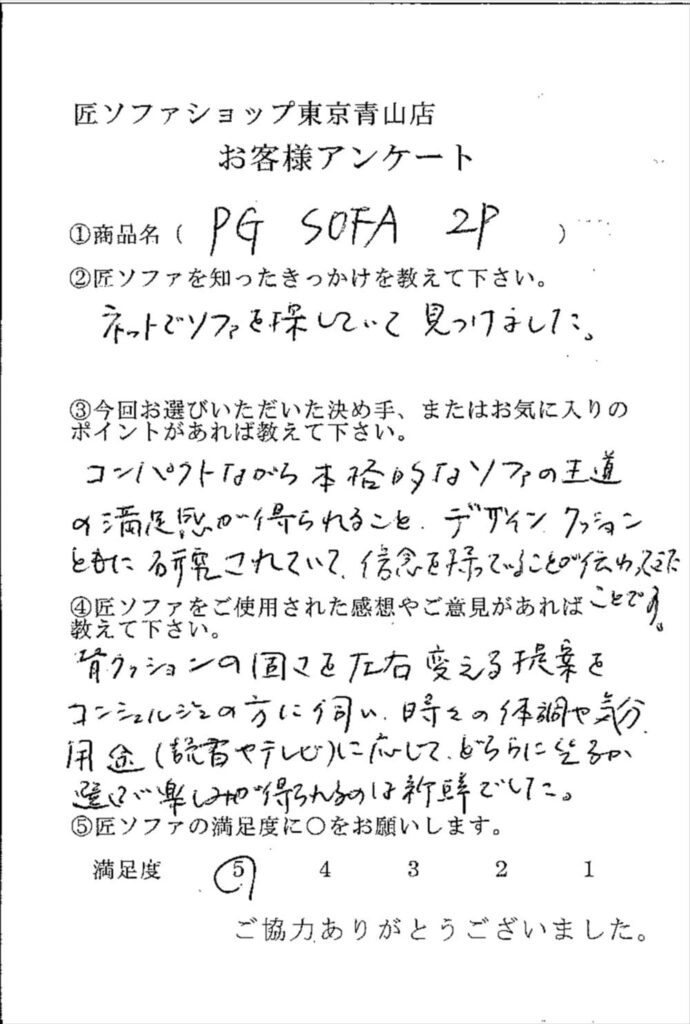 匠ソファショップ東京青山店
お客様アンケート
①商品名（ PG SOFA 2P ）
②匠ソファを知ったきっかけを教えて下さい。
ネットでソファを探していて見つけました。
③今回お選びいただいた決め手、またはお気に入りの
ポイントがあれば教えて下さい。
コンパクトながら本格的なソファの王道
の満足感が得られること、デザイン、クッション
ともに研究されていて、信念を持っていることが伝わってきた
ことです。
④匠ソファをご使用された感想やご意見があれば
教えて下さい。
背クッションの固さを左右変える提案を
コンシェルジュの方に伺い、時々の体調や気分、
用途(読書やテレビ)に応じて、どちらに坐るか
選ぶ楽しみが得られるのは新鮮でした。
⑤匠ソファの満足度に○をお願いします。
満足度 5 4 3 2 1
ご協力ありがとうございました。